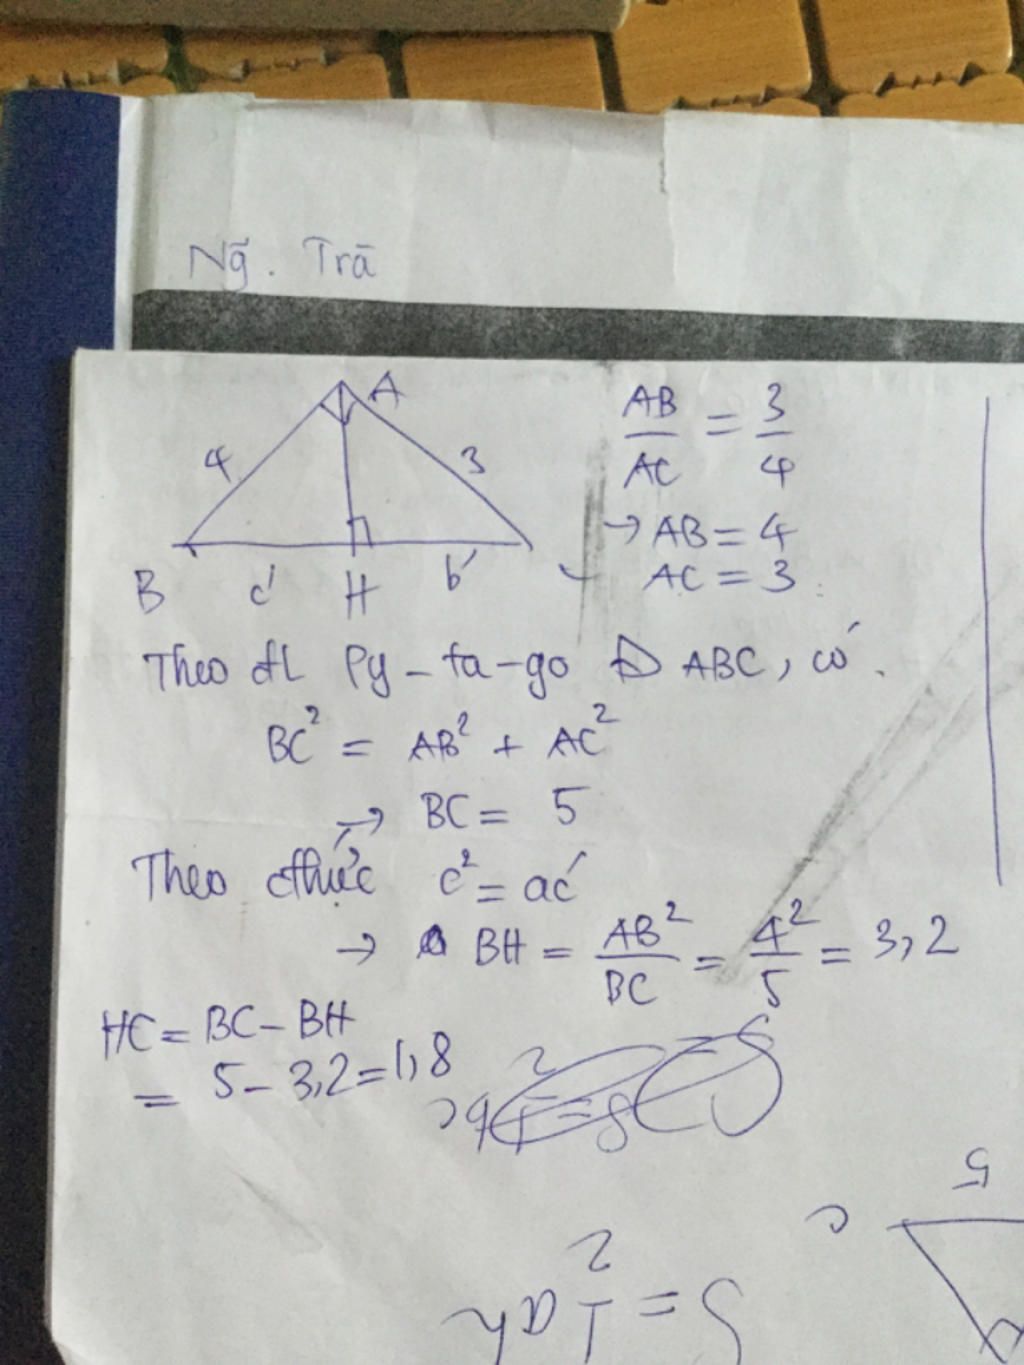 Ng̃. Trā
A
4
3
B c' H b'
AB/AC = 3/4
→ AB = 4
AC = 3
Theo đl Py-ta-go ABC, có.
BC² = AB² + AC²
→ BC = 5
Theo c² = ac'
→ BH = AB²/BC = 4²/5 = 3,2
HC = BC - BH
= 5 - 3,2 = 1,8
5
c
S = 1/2 ah